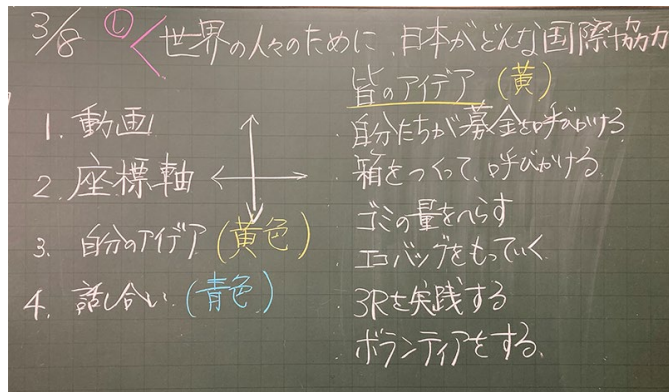 3/8 ① 世界の人々のために、日本がどんな国際協力
1. 動画
2. 座標軸
3. 自分のアイデア (黄色)
4. 話し合い (青色)
皆のアイデア (黄)
自分たちが募金を呼びかける
箱をつくって、呼びかける
ゴミの量をへらす
エコバッグをもっていく
3Rを実践する
ボランティアをする